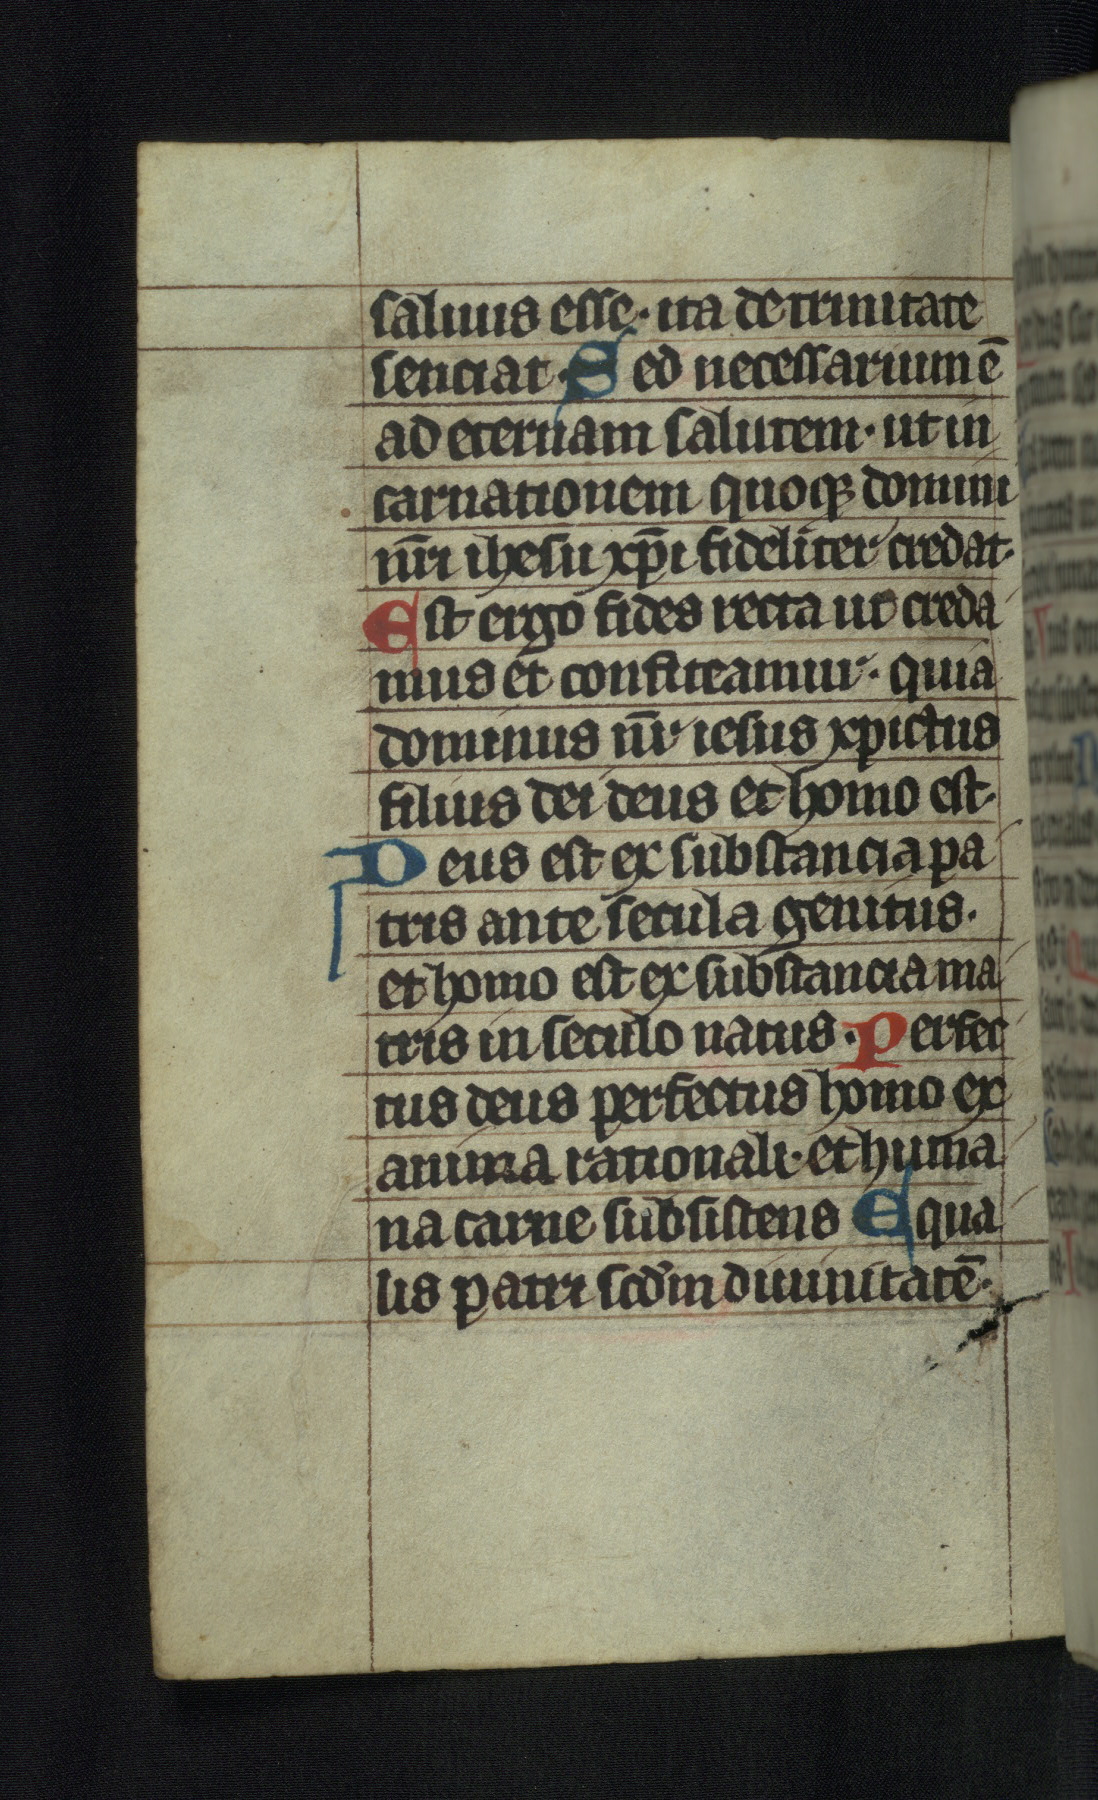 saluus esse· ita de trinitate
senciat· Sed necessarium ē
ad eternam salutem· ut in
carnationem quoqꝫ domini
nr̄i ihesu xp̄i fideliter credat·
Est ergo fides recta ut creda
mus et confiteamur· quia
dominus nr̄ iesus xpictus
filius dei deus et homo est·
Deus est ex substancia pa
tris ante secula genitus·
et homo est ex substancia ma
tris in seculo natus· Perfec
tus deus perfectus homo ex
anima rationali· et huma
na carne subsistens Equa
lis patri scd̄m diuinitatē·